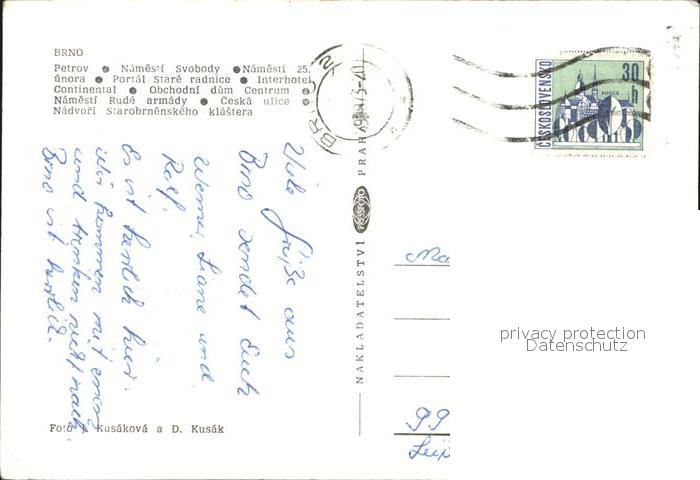 BRNO
Petrov ● Náměstí Svobody ● Náměstí 25.
února ● Portál Staré radnice ● Interhotel
Continental ● Obchodní dům Centrum ●
Náměstí Rudé armády ● Česká ulice ●
Nádvoří Starobrněnského kláštera
Viele Grüße aus
Brno sendet Euch
Werner, Liane und
Rolf.
Es ist herrlich hier.
Wir kommen mit
und trinken nicht nach.
Brno ist herrlich.
Foto Kusáková a D. Kusák
NAKLADATELSTVÍ PRESSFOTO PRAHA
BRNO 2
ČESKOSLOVENSKO
30
h
POŠTA
Ma
99
Leip
privacy protection
Datenschutz